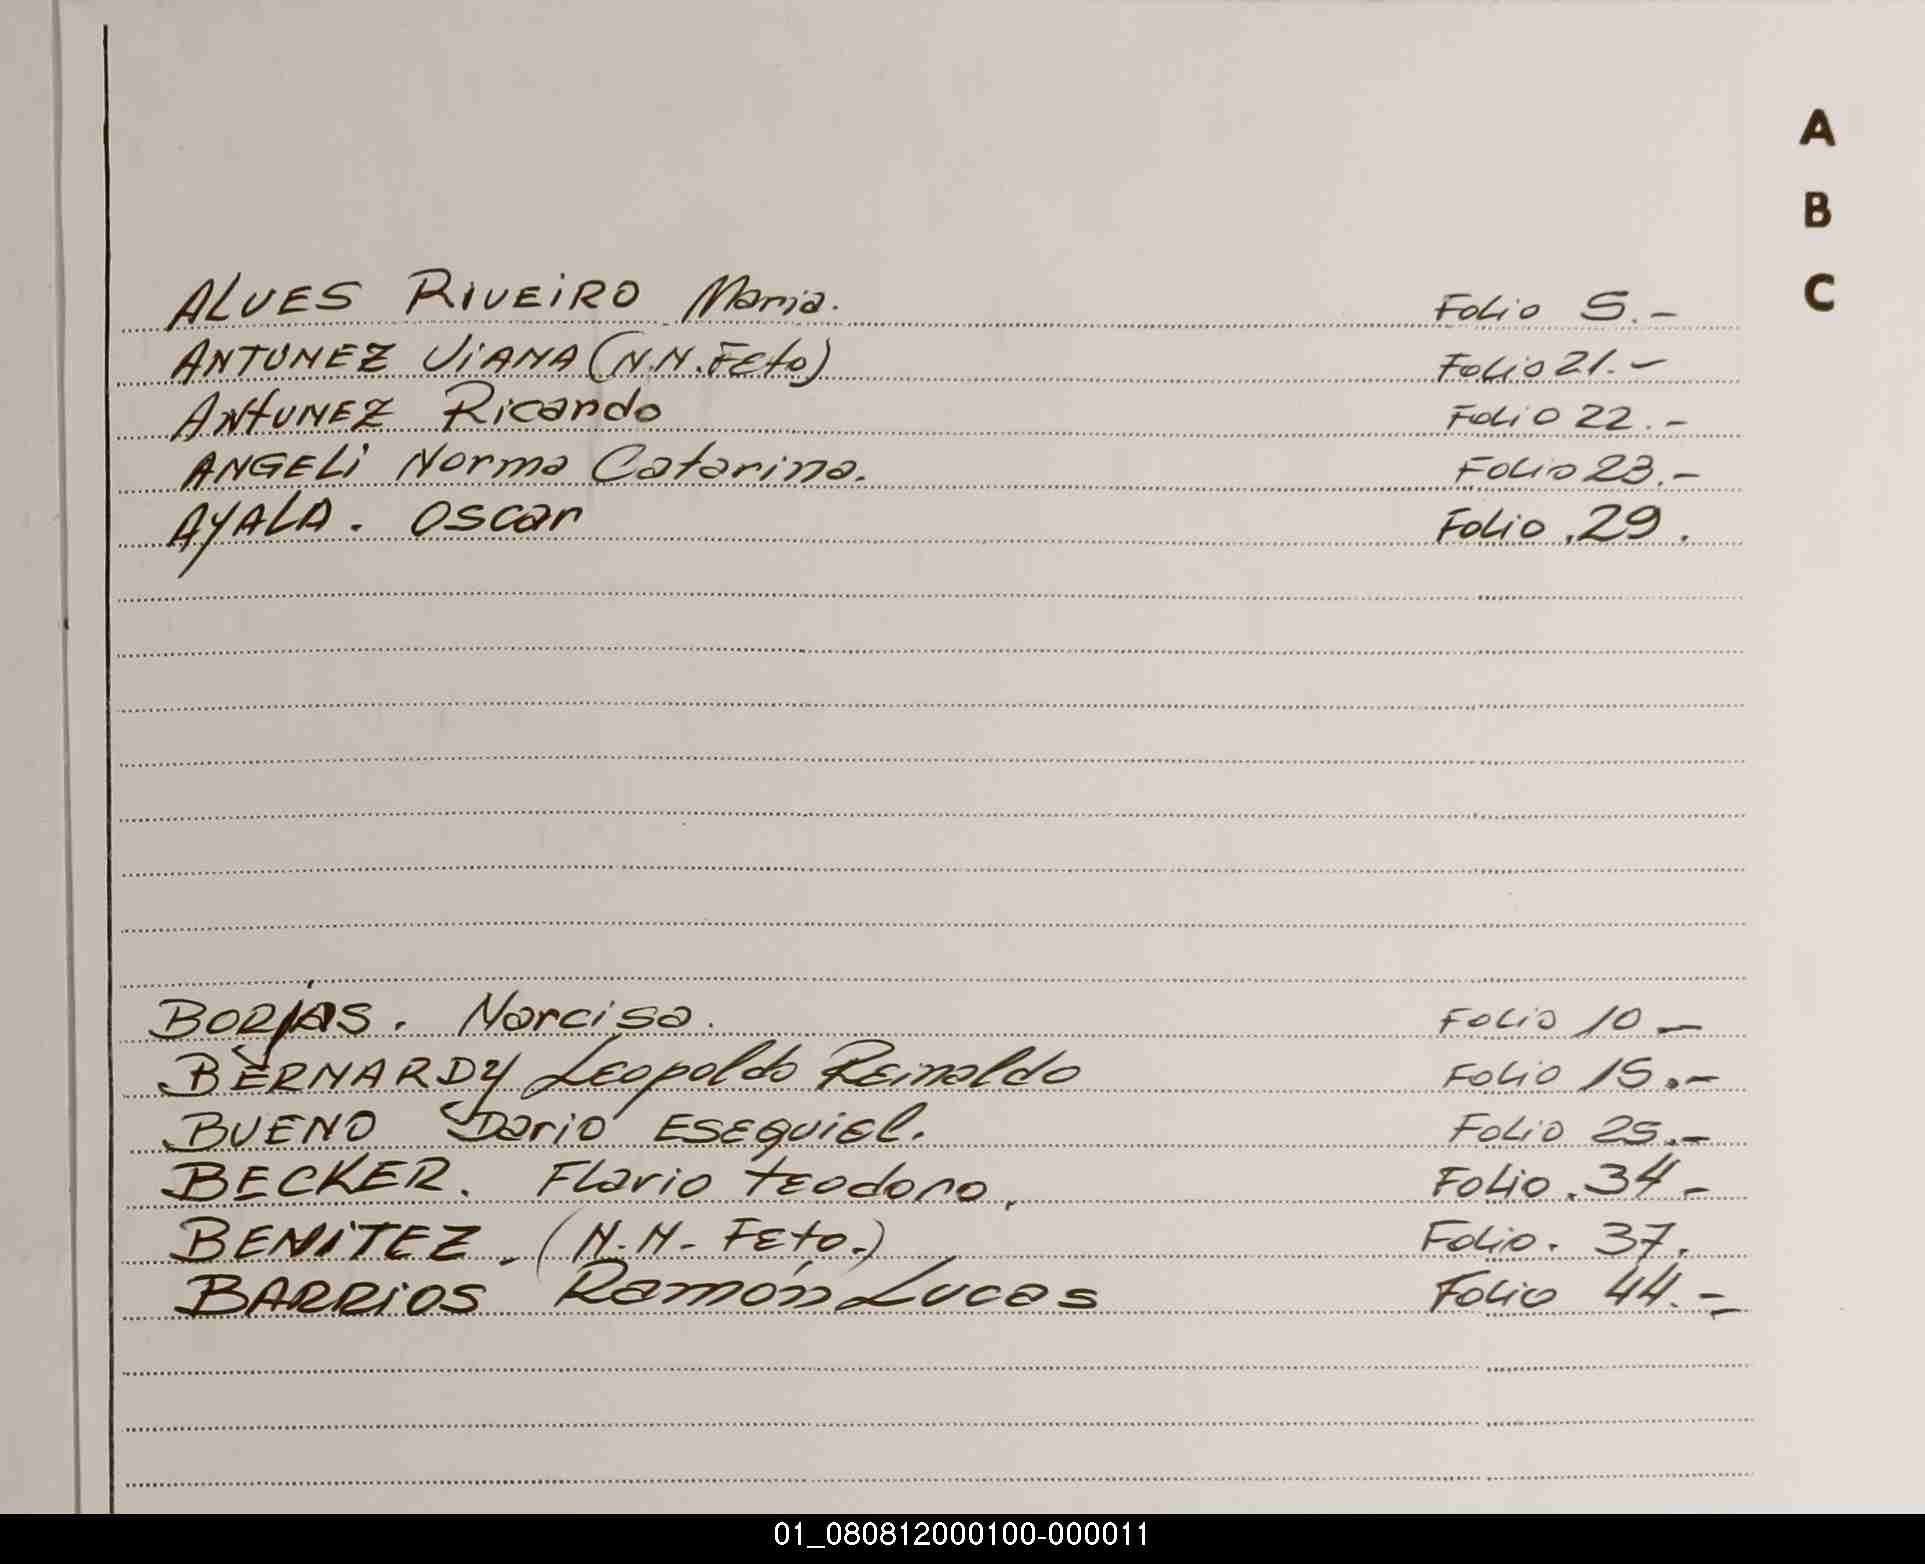 A
B
C
ALVES RIVEIRO Maria. Folio 5.-
ANTUNEZ VIANA (N.N. FEto) Folio 21.-
ANTUNEZ Ricardo Folio 22.-
ANGELI Norma Catarina. Folio 23.-
AYALA. Oscar Folio .29.
BORJAS. Narcisa. Folio 10-
BERNARDY Leopoldo Reinaldo Folio 15.-
BUENO Dario ESEquiel. Folio 25.-
BECKER. Flavio tEodoro. Folio .34-
BENITEZ. (N.N- FEto.) Folio. 37.
BARRIOS Ramón Lucas Folio 44.-
01_080812000100-000011